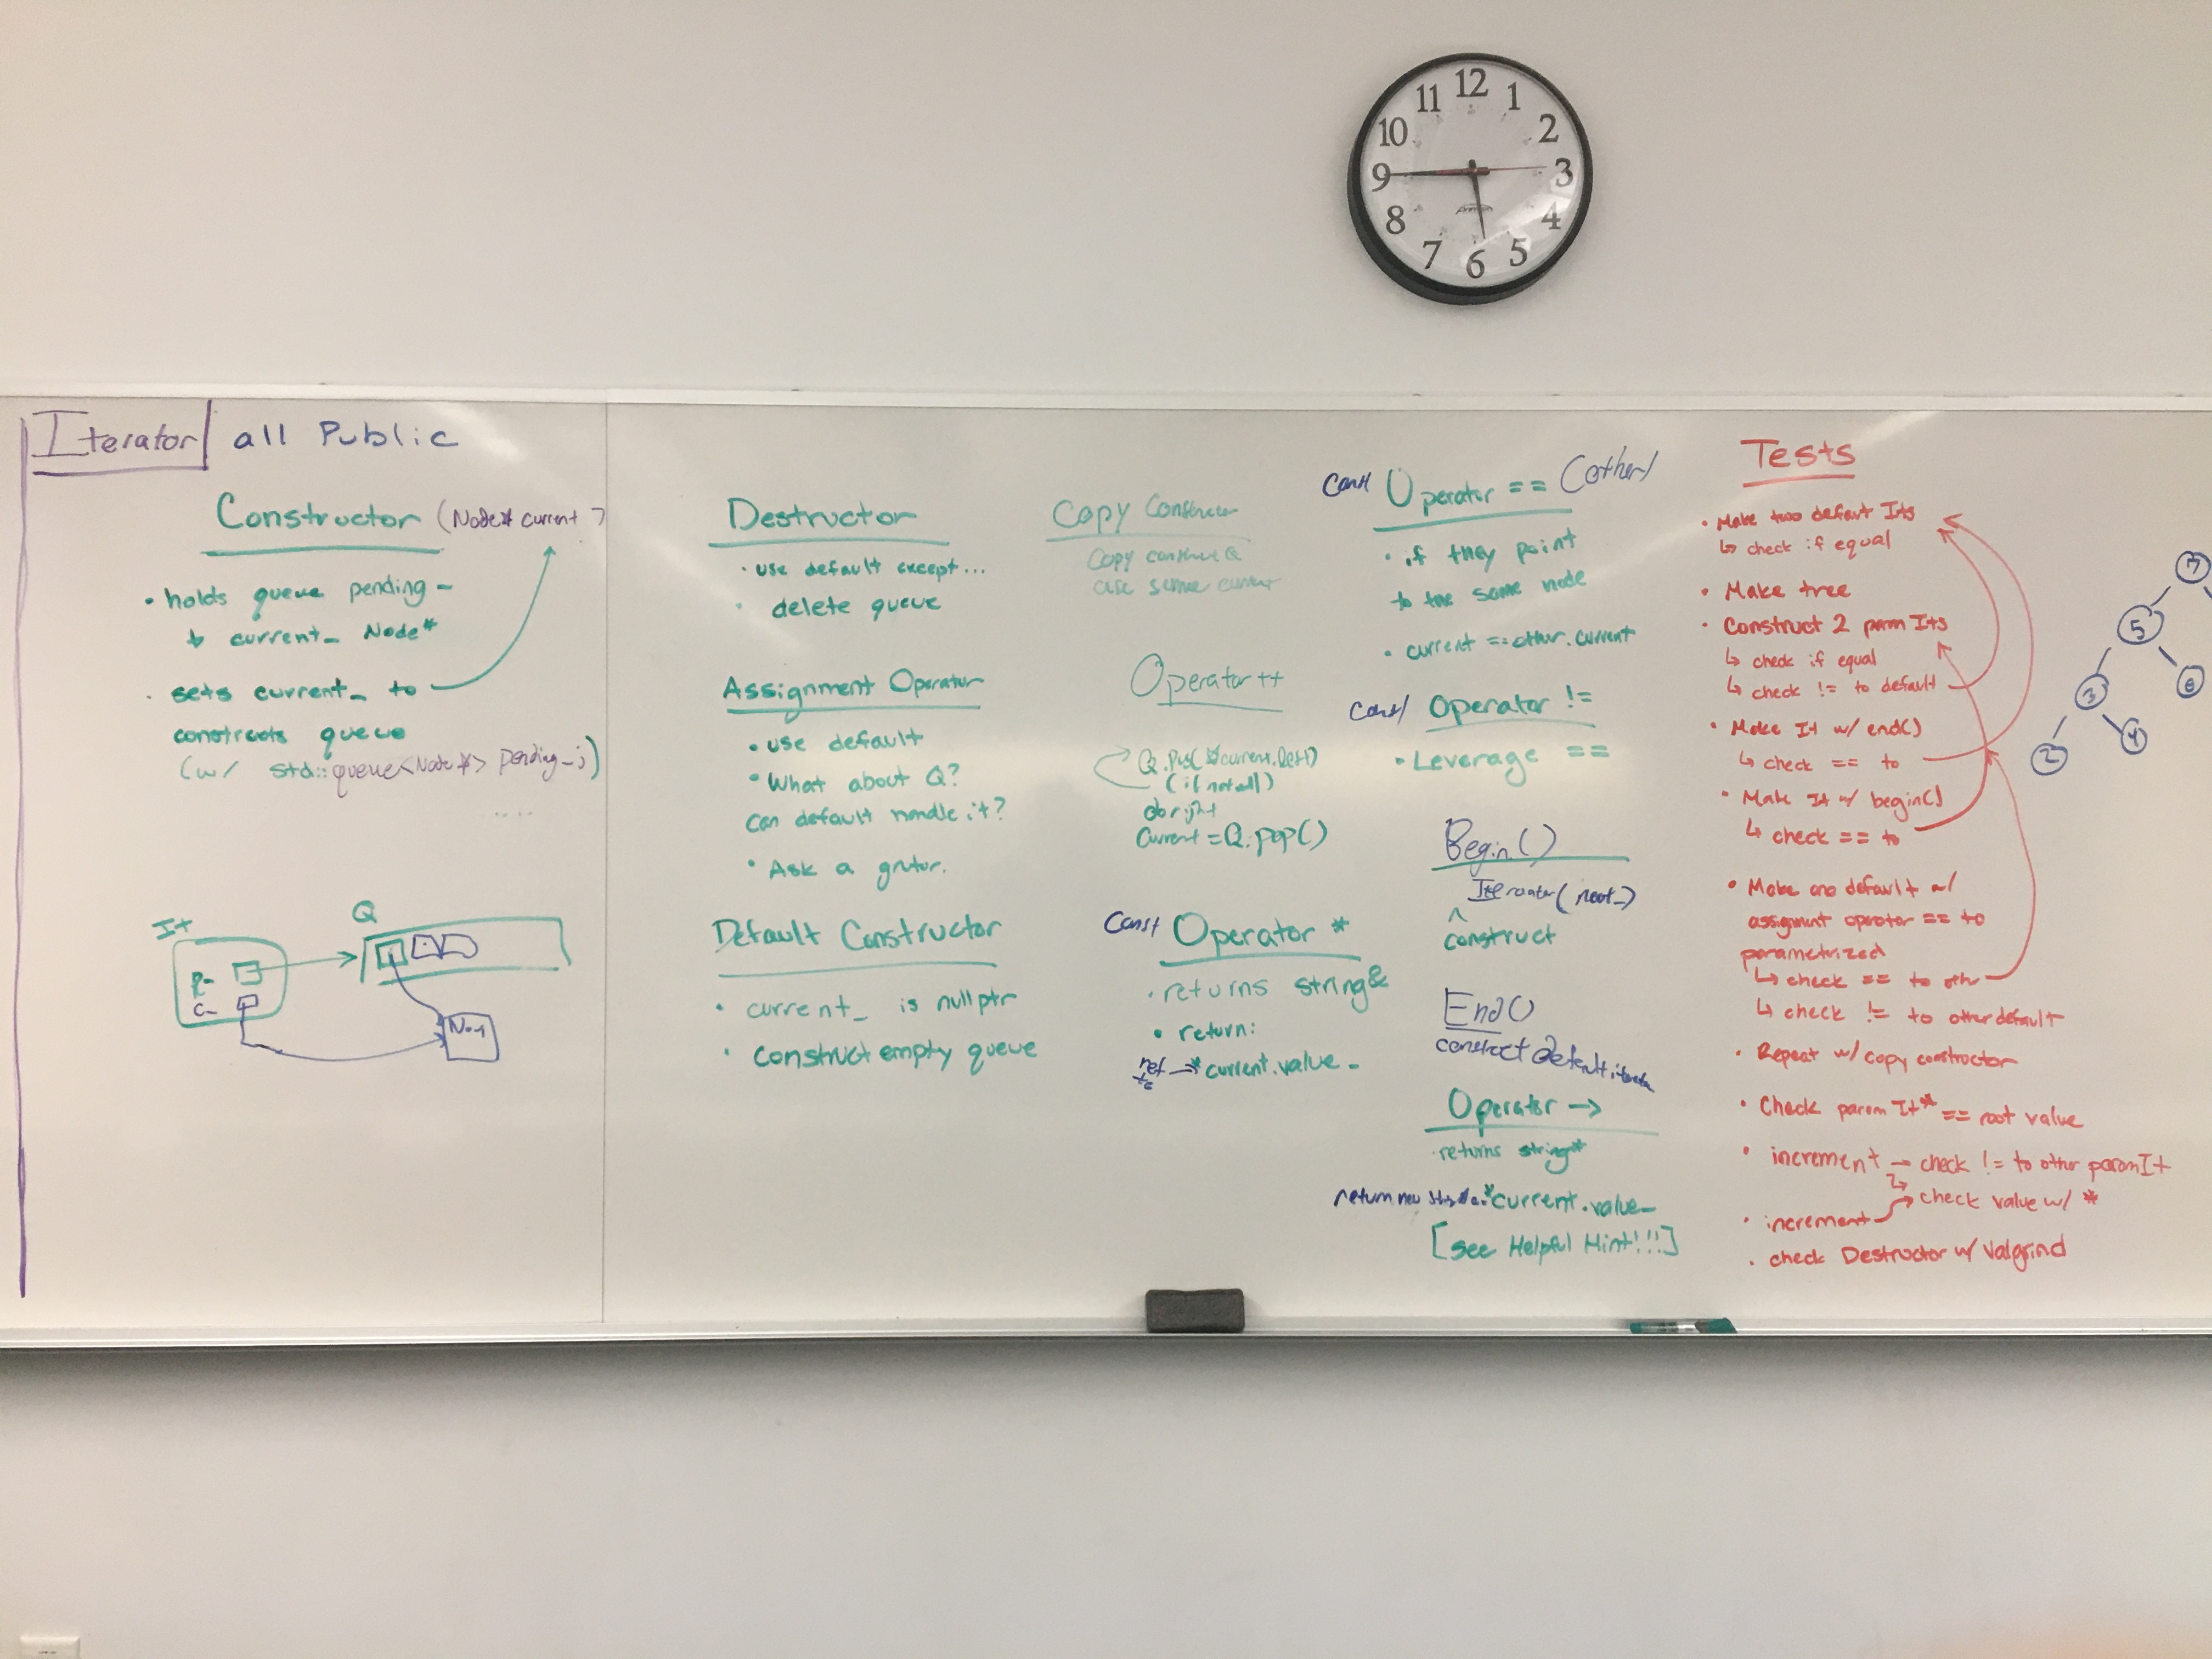 12
11
1
10
2
9
3
8
4
7
5
6
Iterator all Public
Constructor (Node* current)
• holds queue pending_
current_ Node*
• sets current_ to
constructs queue
(w/ std::queue<Node*> pending_;)
It
Q
P_
C_
Destructor
• use default except...
• delete queue
Assignment Operator
• use default
• What about Q?
can default handle it?
• Ask a
Default Constructor
• current_ is nullptr
• construct empty queue
Copy Constructor
Copy construct Q
use same current
Operator ++
current = Q.pop()
const Operator *
• returns string&
• return:
ref to → *current.value_
const Operator == (other)
• if they point
to the same node
• current == other.current
const Operator !=
• Leverage ==
Begin()
Iterator(root_)
^
construct
End()
construct default
Operator →
• returns string*
return new *current.value_
[see Helpful Hint!!!]
Tests
• Make two default Its
↳ check if equal
• Make tree
• Construct 2 param Its
↳ check if equal
↳ check != to default
• Make It w/ end()
↳ check == to
• Make It w/ begin()
↳ check == to
• Make one default w/
assignment operator == to
parametrized
↳ check == to othr
↳ check != to other default
• Repeat w/ copy constructor
• Check param It* == root value
• increment → check != to other param It
↳ check value w/ *
• increment
• check Destructor w/ Valgrind
7
5
3
6
2
4